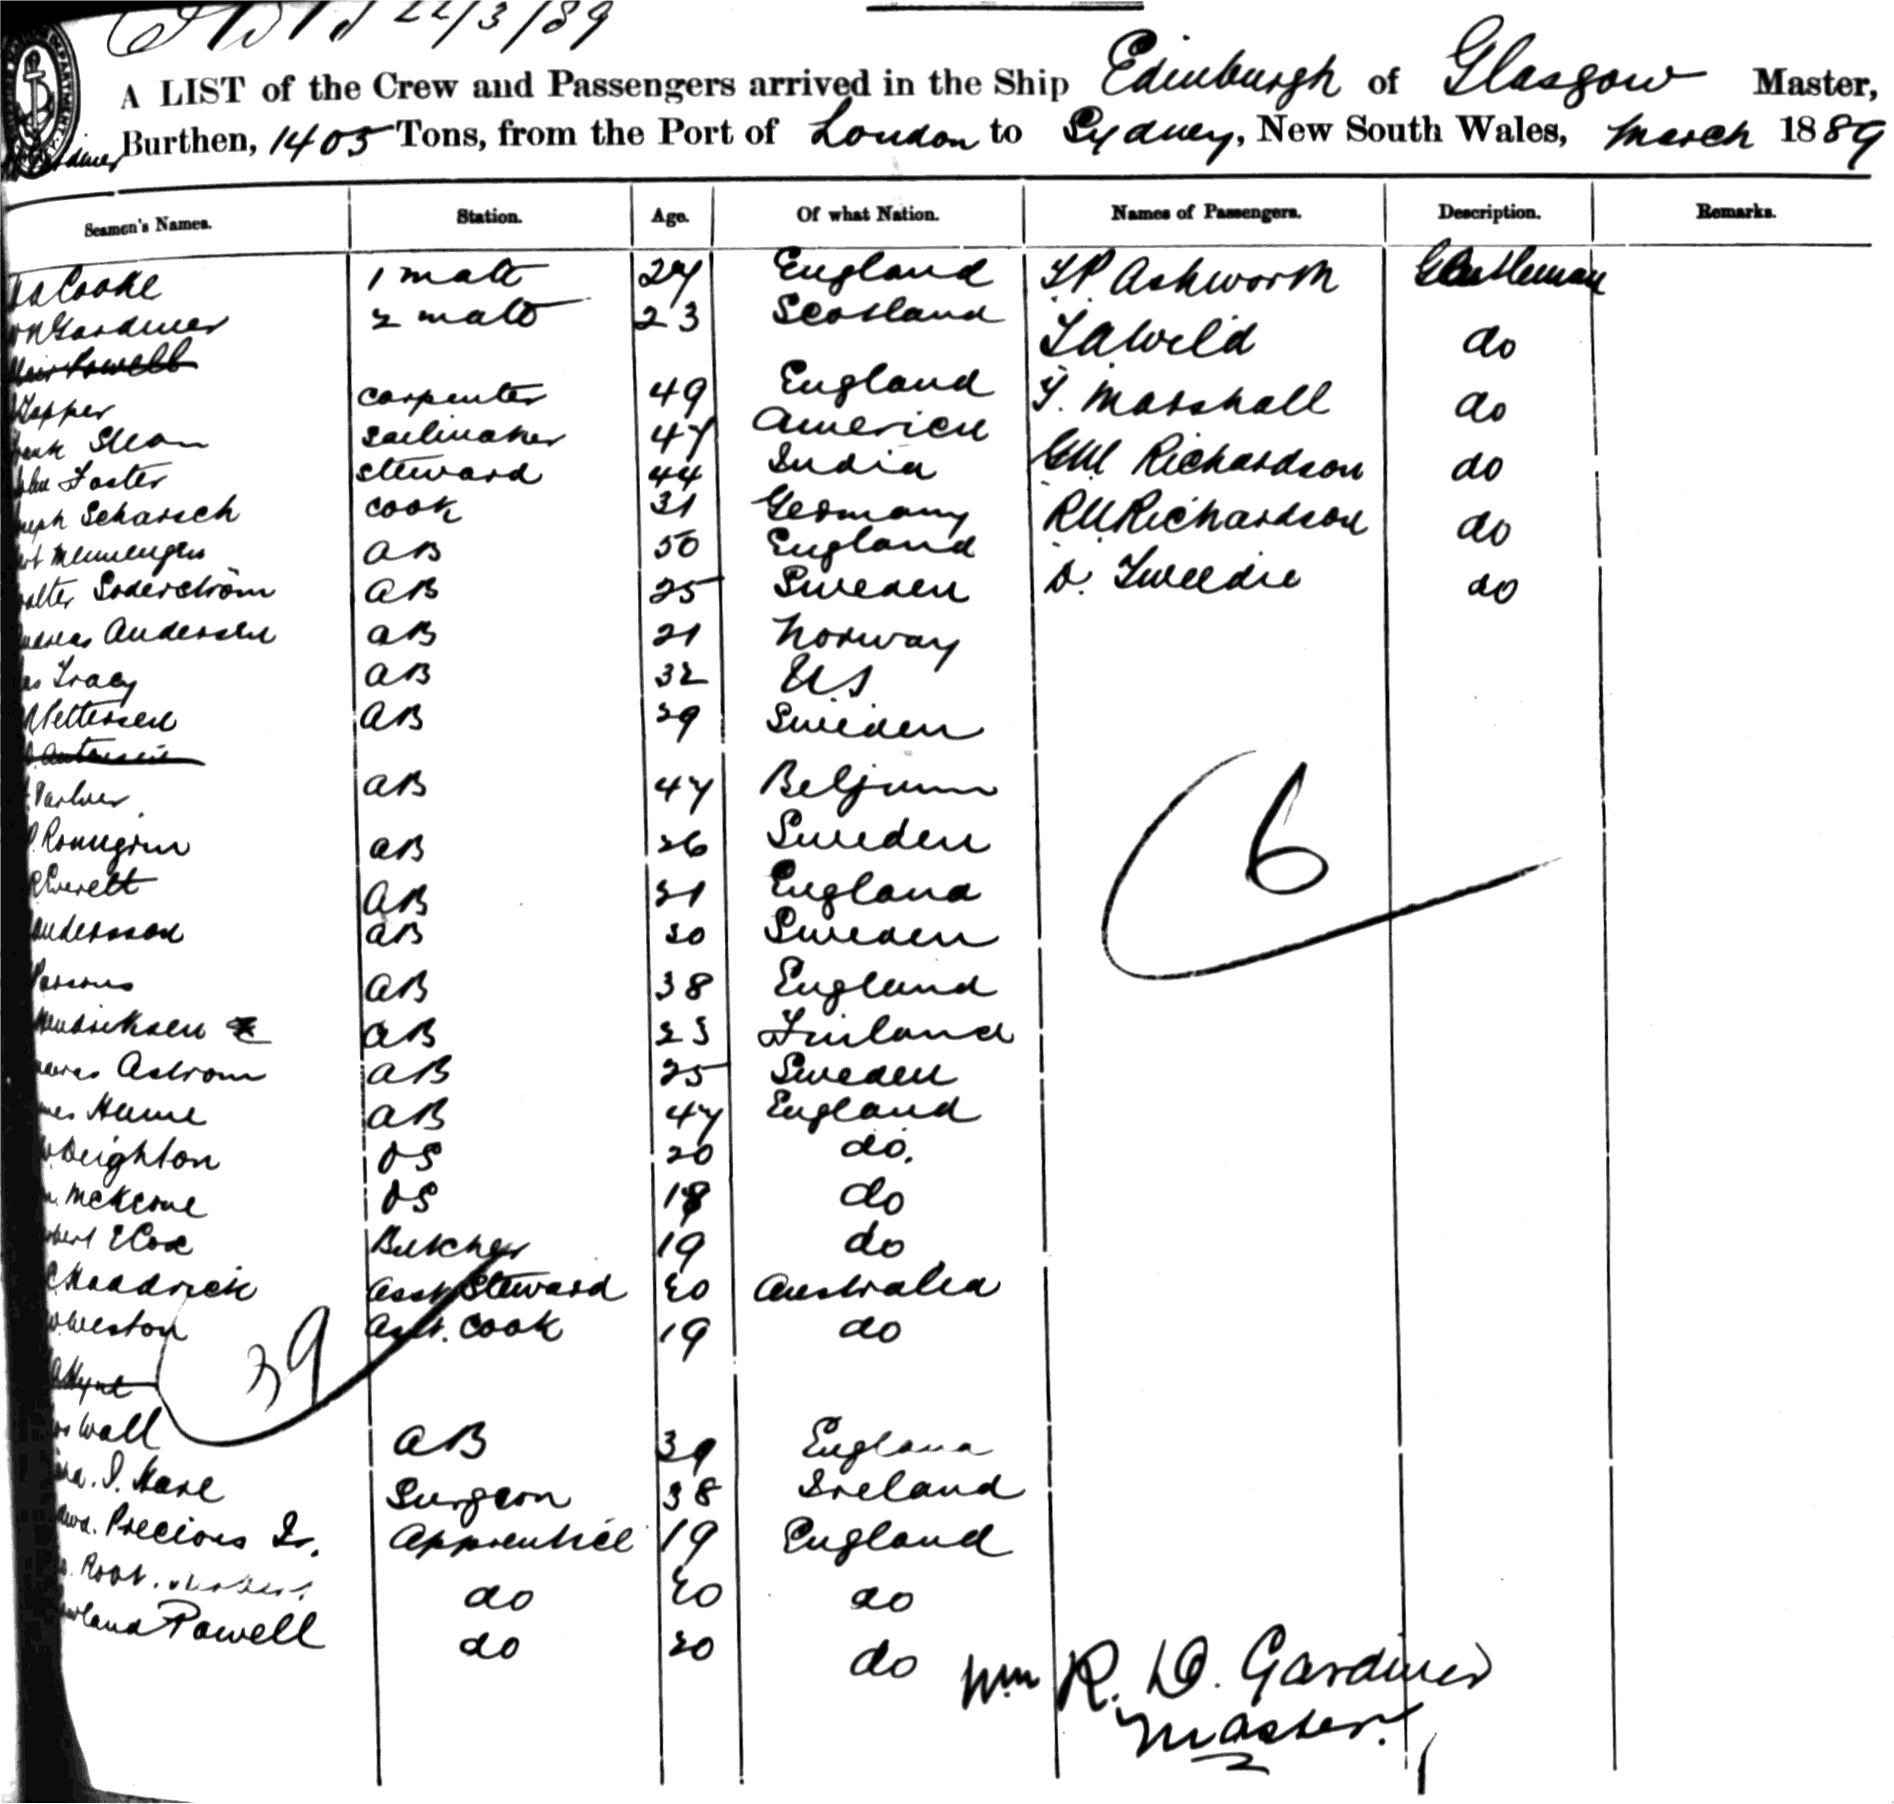 22/3/89
A LIST of the Crew and Passengers arrived in the Ship Edinburgh of Glasgow Master,
Burthen, 1405 Tons, from the Port of London to Sydney, New South Wales, March 1889
Seamen's Names. Station. Age. Of what Nation. Names of Passengers. Description. Remarks.
Cooke 1 mate 27 England T P Ashworth Gentleman
Gardiner 2 mate 23 Scotland
Powell
T A Weld do
Tapper carpenter 49 England T. Marshall do
Sloan sailmaker 47 America
Foster steward 44 India G M Richardson do
Scharsch cook 31 Germany R U Richardson do
AB 50 England
Soderström AB 25 Sweden D. Tweedie do
Andersen AB 21 Norway
Tracy AB 32 US
Pettersen AB 29 Sweden
AB 47 Beljium
6
AB 26 Sweden
Everett AB 21 England
Andersson AB 30 Sweden
Parsons AB 38 England
Hendriksen AB 23 Finland
Astrom AB 25 Sweden
Hume AB 47 England
Deighton OS 20 do.
McKeone OS 18 do
E Cox Butcher 19 do
Haddrick Asst Steward 20 Australia
Weston Asst. Cook 19 do
39
Wall AB 39 England
Hare Surgeon 38 Ireland
Precious Jr. Apprentice 19 England
Root. do 20 do
Powell do 20 do
Wm R. D. Gardiner
Master.